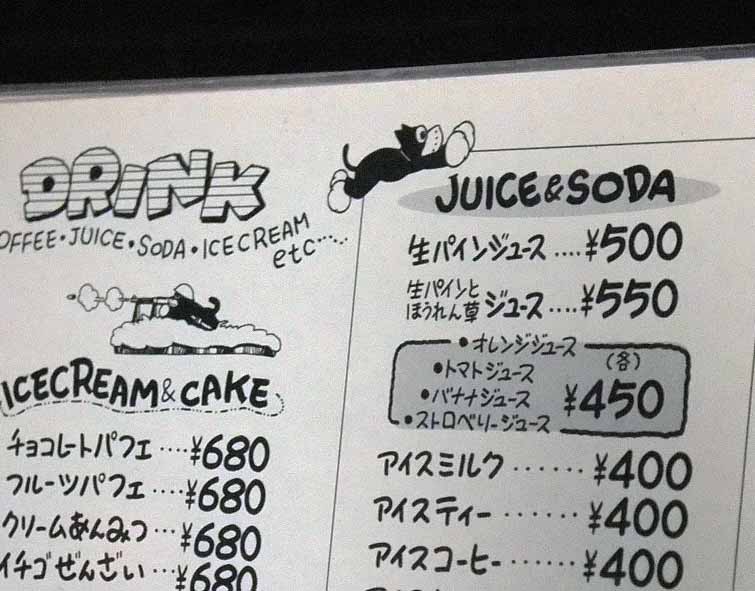 DRINK
OFFEE・JUICE・SODA・ICECREAM
etc·····
ICECREAM&CAKE
チョコレートパフェ····¥680
フルーツパフェ····¥680
クリームあんみつ···¥680
イチゴぜんざい···¥680
JUICE&SODA
生パインジュース....¥500
生パインと
ほうれん草ジュース....¥550
•オレンジジュース
•トマトジュース
•バナナジュース
•ストロベリージュース
(各)
¥450
アイスミルク······¥400
アイスティー······¥400
アイスコーヒー·····¥400